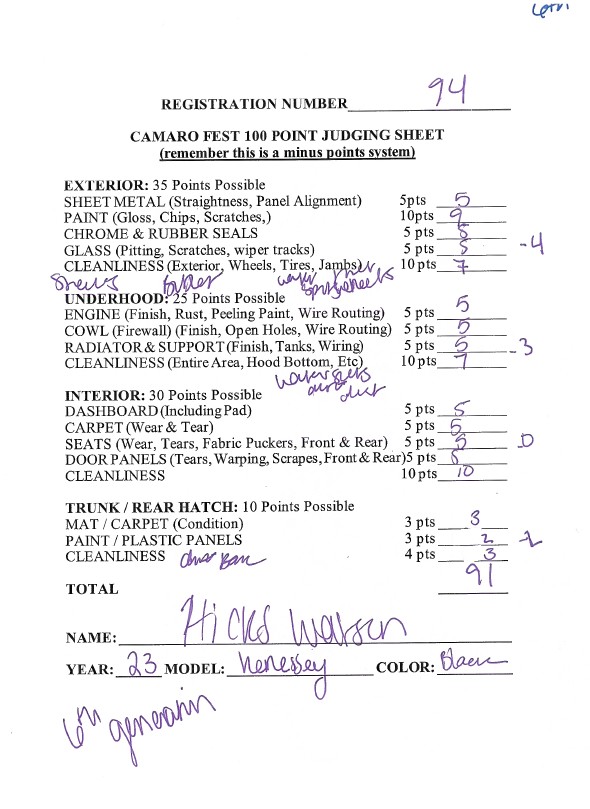 REGISTRATION NUMBER 94
CAMARO FEST 100 POINT JUDGING SHEET
(remember this is a minus points system)
EXTERIOR: 35 Points Possible
SHEET METAL (Straightness, Panel Alignment) 5pts 5
PAINT (Gloss, Chips, Scratches,) 10pts 9
CHROME & RUBBER SEALS 5 pts 5
GLASS (Pitting, Scratches, wiper tracks) 5 pts 5 -4
CLEANLINESS (Exterior, Wheels, Tires, Jambs) 10 pts 7
water
UNDERHOOD: 25 Points Possible
ENGINE (Finish, Rust, Peeling Paint, Wire Routing) 5 pts 5
COWL (Firewall) (Finish, Open Holes, Wire Routing) 5 pts 5
RADIATOR & SUPPORT (Finish, Tanks, Wiring) 5 pts 5 -3
CLEANLINESS (Entire Area, Hood Bottom, Etc) 10 pts 7
dust
INTERIOR: 30 Points Possible
DASHBOARD (Including Pad) 5 pts 5
CARPET (Wear & Tear) 5 pts 5
SEATS (Wear, Tears, Fabric Puckers, Front & Rear) 5 pts 5 0
DOOR PANELS (Tears, Warping, Scrapes, Front & Rear) 5 pts 5
CLEANLINESS 10 pts 10
TRUNK / REAR HATCH: 10 Points Possible
MAT / CARPET (Condition) 3 pts 3
PAINT / PLASTIC PANELS 3 pts 2 -2
CLEANLINESS 4 pts 3
TOTAL 91
NAME: Hicks Watson
YEAR: 23 MODEL: Henessey COLOR: Black
6th generain